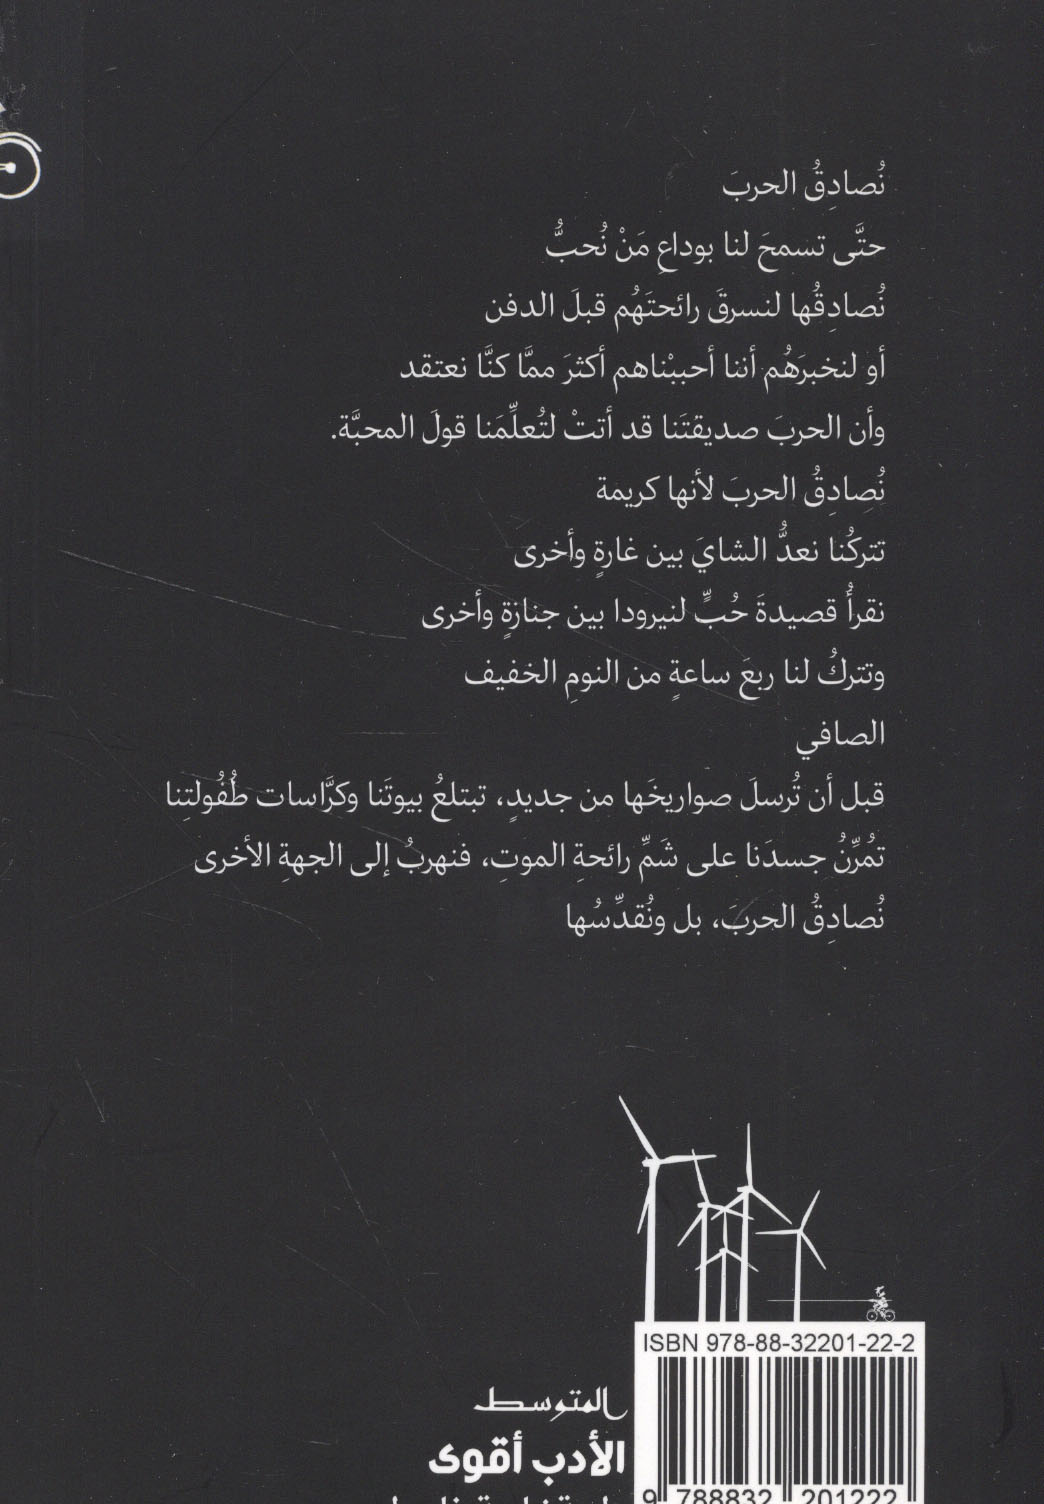 نُصادِقُ الحربَ
حتَّى تسمحَ لنا بوداعِ مَنْ نُحبُّ
نُصادِقُها لنسرقَ رائحتَهُم قبلَ الدفن
أو لنخبرَهُم أننا أحببْناهم أكثرَ ممَّا كنَّا نعتقد
وأن الحربَ صديقتَنا قد أتتْ لتُعلِّمَنا قولَ المحبَّة.
نُصادِقُ الحربَ لأنها كريمة
تتركُنا نعدُّ الشايَ بين غارةٍ وأخرى
نقرأُ قصيدةَ حُبٍّ لنيرودا بين جنازةٍ وأخرى
وتتركُ لنا ربعَ ساعةٍ من النومِ الخفيف
الصافي
قبل أن تُرسلَ صواريخَها من جديدٍ، تبتلعُ بيوتَنا وكرَّاسات طُفُولتِنا
تمُرِّنُ جسدَنا على شَمِّ رائحةِ الموتِ، فنهربُ إلى الجهةِ الأخرى
نُصادِقُ الحربَ، بل ونُقدِّسُها
ISBN 978-88-32201-22-2
المتوسط
الأدب أقوى
9 788832 201222